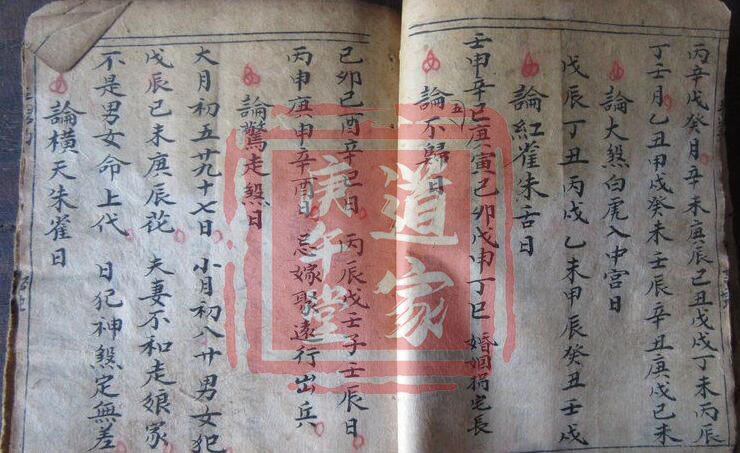 丙辛戊癸月辛未庚辰己丑戊戌丁未丙辰
丁壬月乙丑甲戌癸未壬辰辛丑庚戌己未
論大煞白虎入中宮日
戊辰丁丑丙戌乙未甲辰癸丑壬戌
論紅雀朱舌日
壬申辛巳庚寅己卯戊申丁巳 婚姻損宅長
論不歸日
己卯己酉辛巳日 丙辰戊壬子壬辰日
丙申庚申辛酉日 忌嫁娶遠行出兵
論驚走煞日
大月初五廿九十七日 小月初八廿男女犯
戊辰己未庚辰花 夫妻不和走娘家
不是男女命上代 日犯神煞定無差
論橫天朱雀日
道家
庚午堂